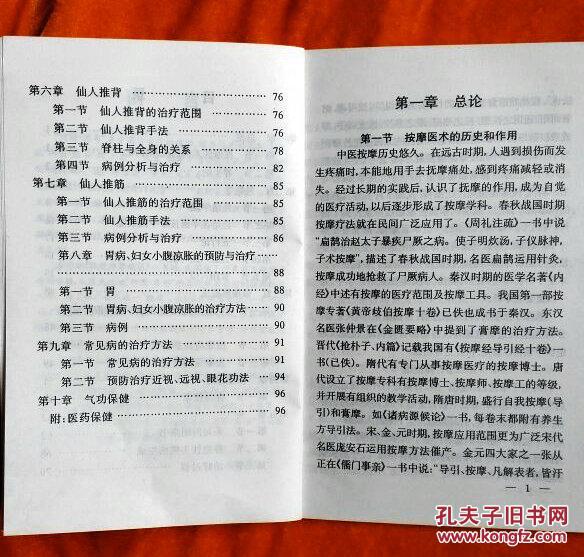 第六章 仙人推背 …… 76
第一节 仙人推背的治疗范围 …… 76
第二节 仙人推背手法 …… 76
第三节 脊柱与全身的关系 …… 78
第四节 病例分析与治疗 …… 82
第七章 仙人推筋 …… 85
第一节 仙人推筋的治疗范围 …… 85
第二节 仙人推筋手法 …… 85
第三节 病例分析与治疗 …… 86
第八章 胃病、妇女小腹凉胀的预防与治疗 ……
…… 88
第一节 胃 …… 88
第二节 胃病、妇女小腹凉胀的治疗方法 …… 90
第三节 病例 …… 90
第九章 常见病的治疗方法 …… 91
第一节 常见病的治疗方法 …… 91
第二节 预防治疗近视、远视、眼花功法 …… 94
第十章 气功保健 …… 96
附:医药保健 …… 96
第一章 总论
第一节 按摩医术的历史和作用
中医按摩历史悠久。在远古时期,人遇到损伤而发
生疼痛时,本能地用手去抚摩痛处,感到疼痛减轻或消
失。经过长期的实践后,认识了抚摩的作用,成为自觉
的医疗活动,以后逐步形成了按摩学科。春秋战国时期
按摩疗法就在民间广泛应用了。《周礼注疏》一书中说
“扁鹊治赵太子暴疾尸厥之病。使子明炊汤,子仪脉神,
子术按摩”,描述了春秋战国时期,名医扁鹊运用针灸,
按摩成功地抢救了尸厥病人。秦汉时期的医学名著《内
经》中述有按摩的医疗范围及按摩工具。我国第一部按
摩专著《黄帝歧伯按摩十卷》已佚也成书于秦汉。东汉
名医张仲景在《金匮要略》中提到了膏摩的治疗方法。
晋代《抢朴子、内篇》记载我国有《按摩经导引经十卷》一
书(已佚)。隋代有专门从事按摩医疗的按摩博士。唐
代设立了按摩专科有按摩博士、按摩师、按摩工的等级,
并开展有组织的教学活动,隋唐时期,盛行自我按摩(导
引)和膏摩。如《诸病源候论》一书,每卷末都附有养生
方导引法。宋、金、元时期,按摩应用范围更为广泛宋代
名医庞安石运用按摩方法催产。金元四大家之一张从
正在《儒门事亲》一书中说:“导引、按摩、凡解表者,皆汗
— 1 —
孔夫子旧书网